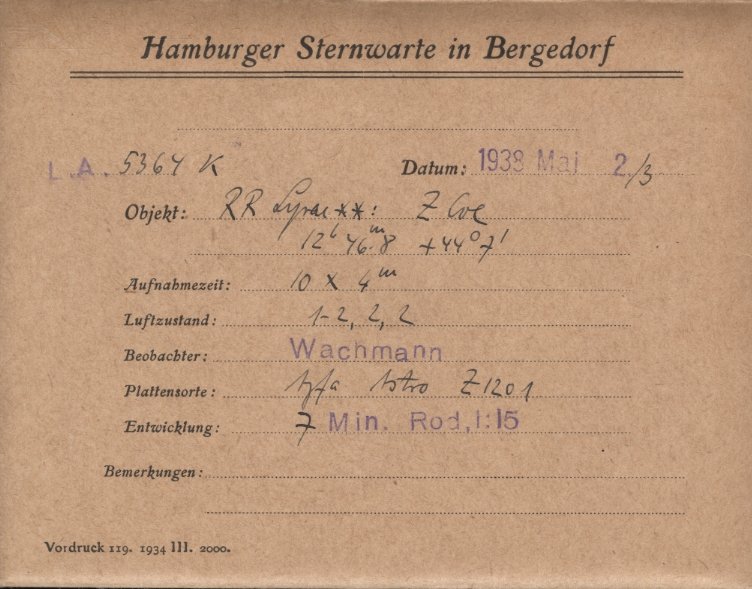 Hamburger Sternwarte in Bergedorf
L.A. 5364 K Datum: 1938 Mai 2/3
Objekt: RR Lyrae **: Z CVn
12h 46m.8 +44°7'
Aufnahmezeit: 10 x 4m
Luftzustand: 1-2, 2, 2
Beobachter: Wachmann
Plattensorte: Agfa Astro Z1201
Entwicklung: 7 Min. Rod, 1:15
Bemerkungen:
Vordruck 119. 1934 III. 2000.